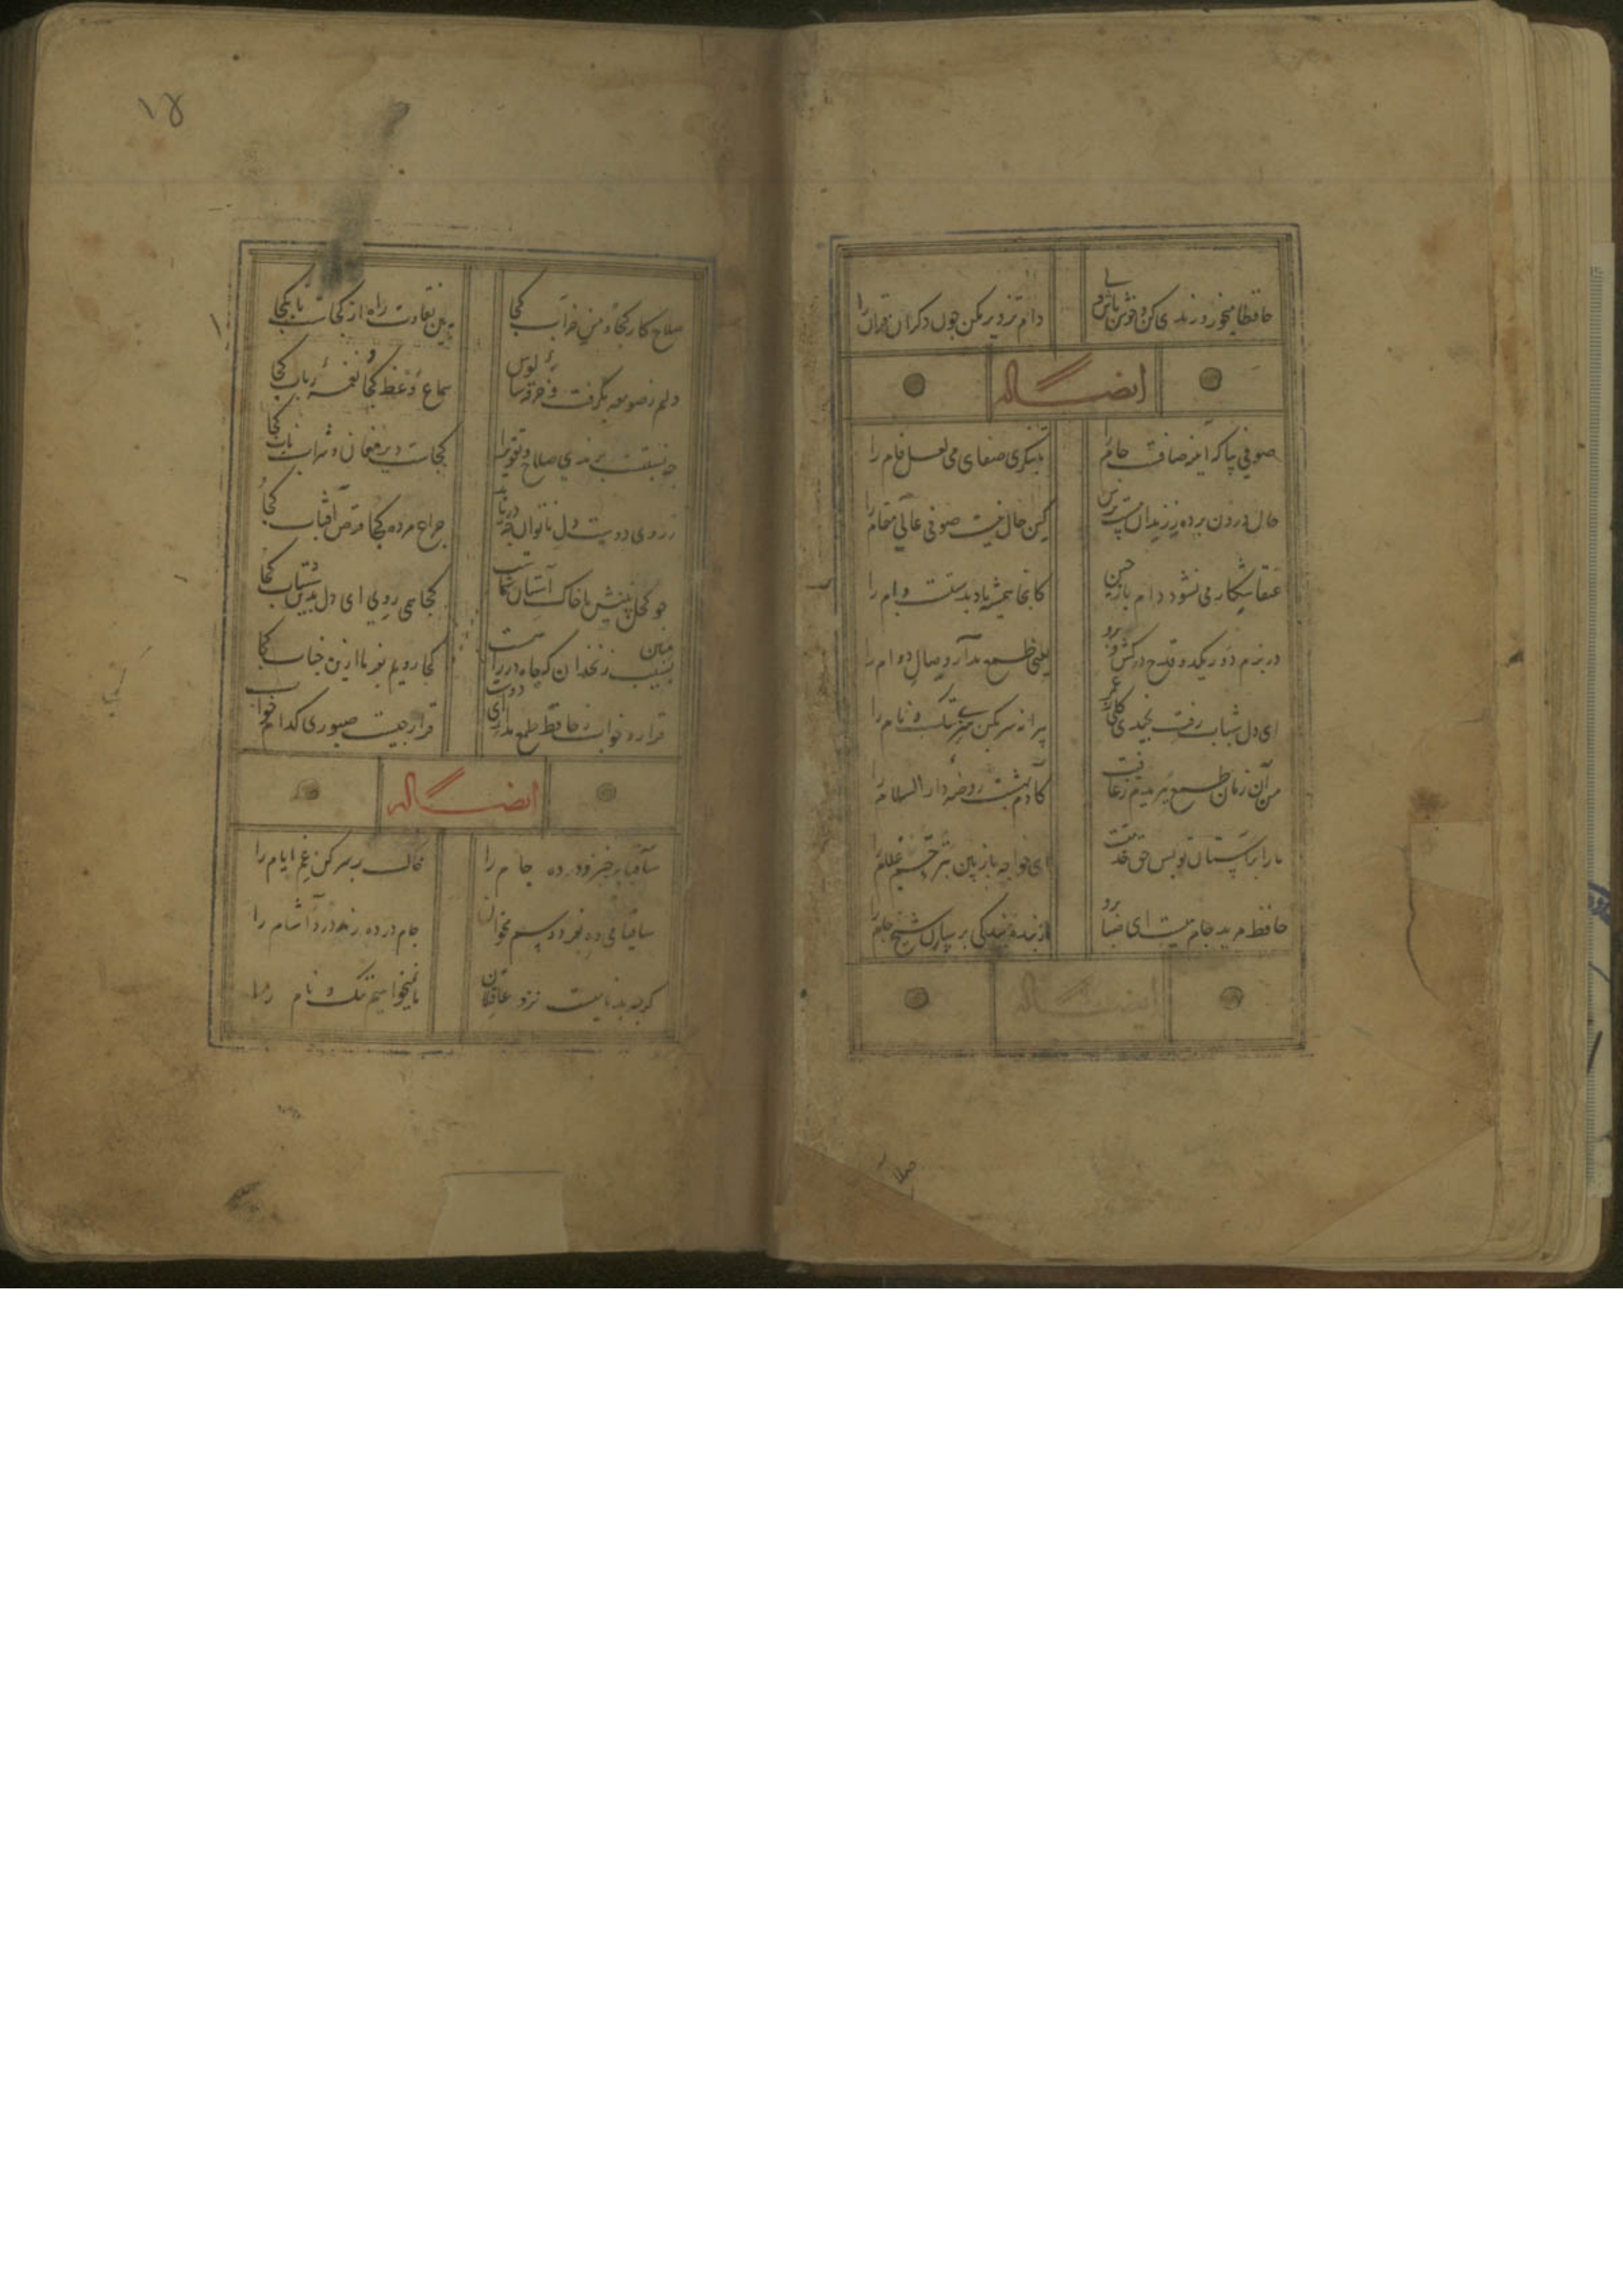 حافظا میخور و رندی کن و خوش باش ولی
دام تزویر مکن چون دکران قرآن را
ایضا له
صوفی بیا که آینه صافست جام را
تا بنکری صفای می لعل فام را
حال درون پرده ز رندان مست پرس
کین حال نیست صوفی عالی مقام را
عنقا شکار می نشود دام باز چین
کانجا همیشه باد بدستست دام را
در بزم دور یکدو قدح درکش و برو
یعنی طمع مدار وصال دوام را
ای دل شباب رفت نچیدی کلی ز عمر
پیرانه سر مکن هنری ننک و نام را
من آن زمان طمع ببریدم ز عافیت
کآدم بهشت روضه دار السلام را
ما را بر آستان تو بس حق خدمتست
ای خواجه باز بین بترحم غلام را
حافظ مرید جام میست ای صبا برو
از بنده بندکی برسان شیخ جام را
ایضا له
صلاح
۱۵
صلاح کار کجا و من خراب کجا
ببین تفاوت راه از کجاست تا بکجا
دلم ز صومعه بکرفت و خرقه سالوس
سماع وعظ کجا و نغمه رباب کجا
چه نسبتست برندی صلاح و تقوی را
کجاست دیر مغان و شراب ناب کجا
ز روی دوست دل ناتوان چه دریابد
چراغ مرده کجا قرص آفتاب کجا
چو کحل بینش ما خاک آستان شماست
کجا همی روی ای دل بدین شتاب کجا
مبین بسیب زنخدان که چاه در راهست
کجا رویم بفرما ازین جناب کجا
قرار و خواب ز حافظ طمع مدار ای دوست
قرار چیست صبوری کدام و خواب کجا
ایضا له
ساقیا برخیز و در ده جام را
خاک بر سر کن غم ایام را
ساقیا می ده
جام در ده رند درد آشام را
کرچه بدنامیست نزد عاقلان
ما نمیخواهیم ننک و نام را